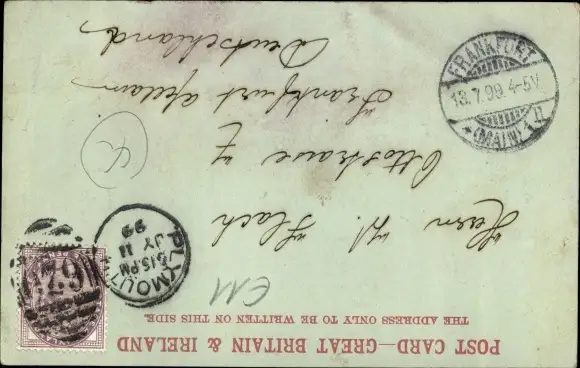 POST CARD—GREAT BRITAIN & IRELAND
THE ADDRESS ONLY TO BE WRITTEN ON THIS SIDE.
EM
PLYMOUTH
5 15 PM
JY 11
99
Herrn H. Flach
Ottostrasse 7
Frankfurt a/Main
Deutschland
FRANKFURT
13.7.99. 4-5V.
* (MAIN) 1 *